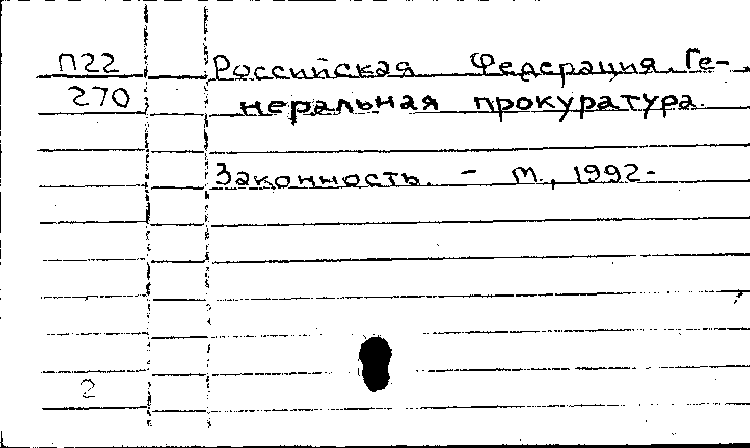 П22 Российская Федерация. Ге-
270 неральная прокуратура.
Законность. - М., 1992-
2